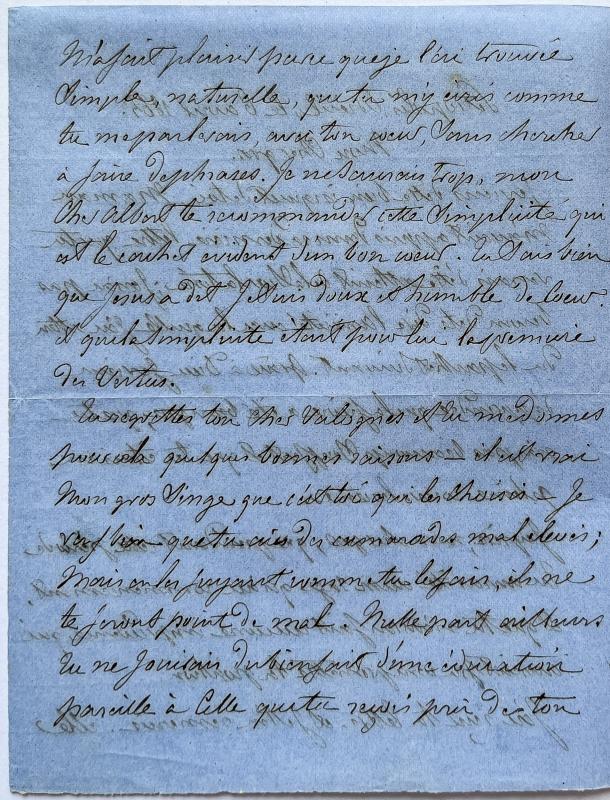 m'a fait plaisir parce que je l'ai trouvée
Simple, naturelle, que tu m'y ecris comme
tu me parlerais, avec ton cœur, Sans chercher
à faire de phrases. Je ne Saurais trop, mon
Cher Albert te recommander cette Simplicité qui
est le cachet evident d'un bon cœur. tu Sais bien
que Jesus a dit Je Suis doux et humble de Cœur.
et que la Simplicité etait pour lui la premiere
des Vertus.
Tu regrettes ton cher Valognes et tu me donnes
pour cela quelques bonnes raisons — il est vrai
Mon gros Singe que c'est toi qui les Choisis — Je
bien que tu aies des camarades mal elevés;
Mais en les fuyant comme tu le fais, ils ne
te feront point de mal. Nulle part ailleurs
tu ne Jouirais du bienfait d'une éducation
pareille à Celle que tu reçois près de ton